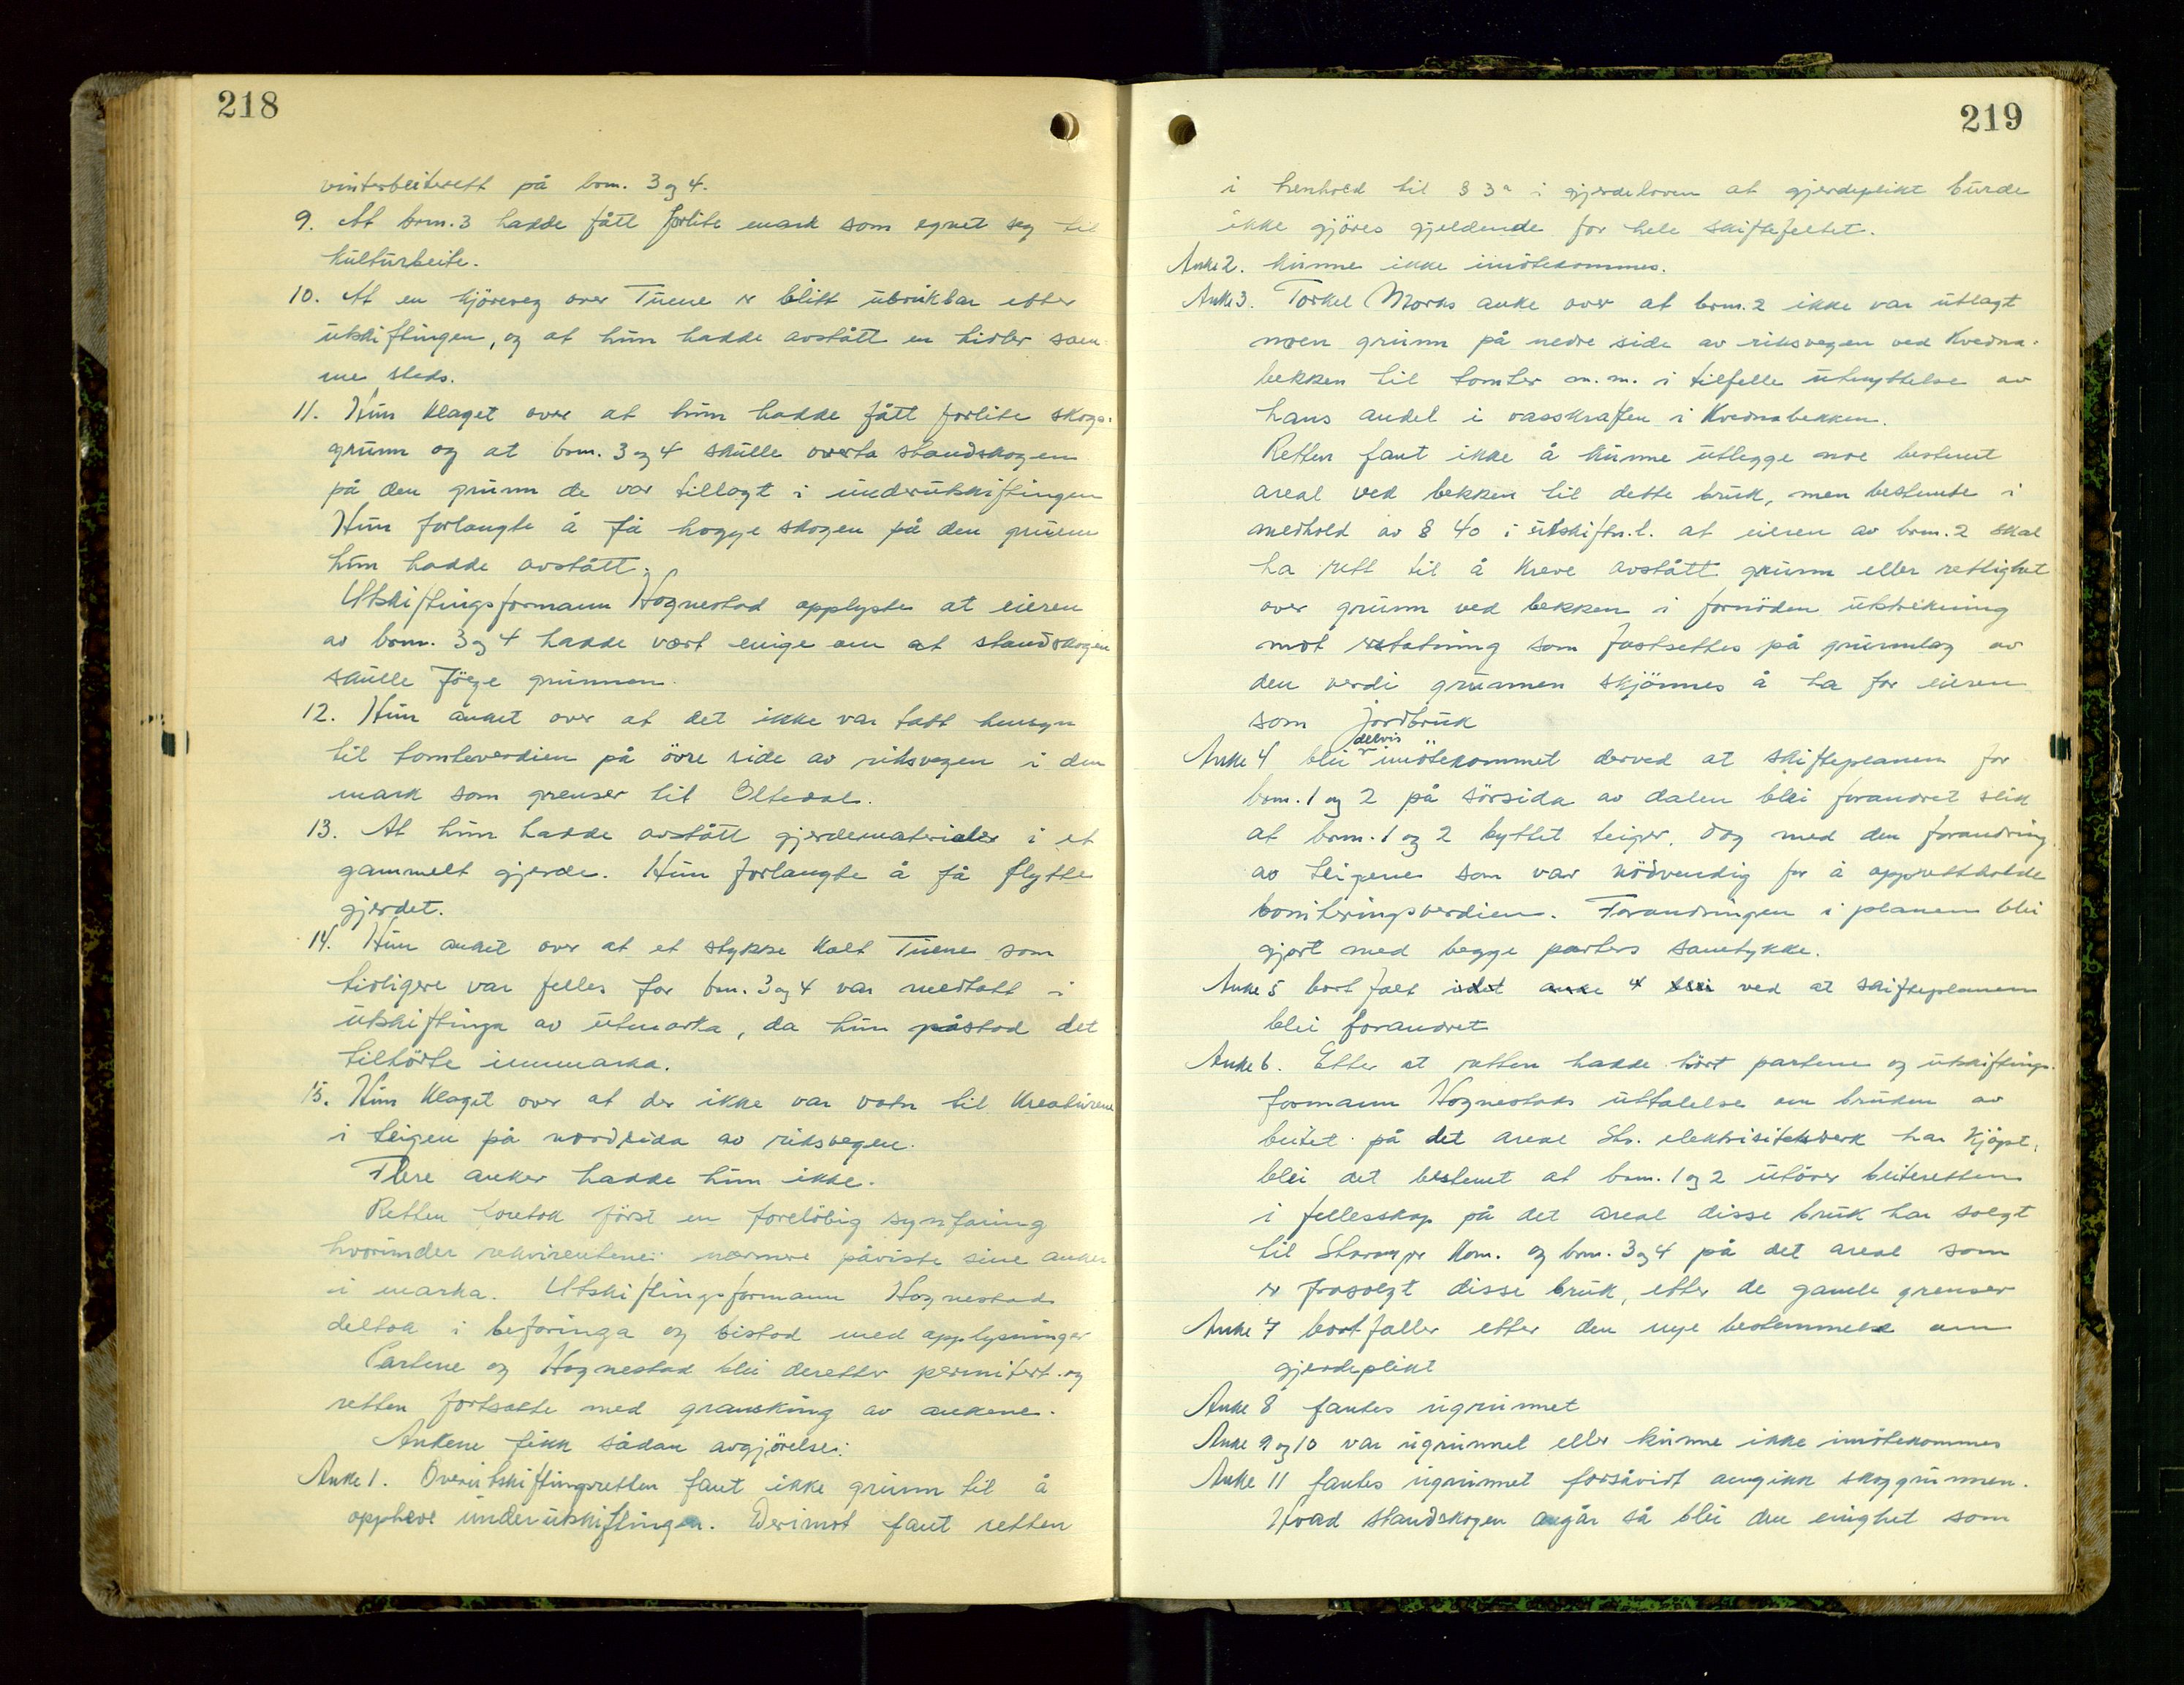 218
vinterbeiterett på brn. 3 og 4.
9. At brn. 3 hadde fått forlite mark som egnet seg til
kulturbeite.
10. At en kjöreveg over Tuene er blitt ubrukbar etter
utskiftingen, og at hun hadde avstått en sam-
me steds.
11. Hun klaget over at hun hadde fått forlite skogs-
grunn og at brn. 3 og 4 skulle overta standskogen
på den grunn de var tillagt i underutskiftingen
Hun forlangte å få hogge skogen på den grunn
hun hadde avstått.
Utskiftingsformann Hognestad opplyste at eieren
av brn. 3 og 4 hadde vært enige om at standskogen
skulle fölge grunnen.
12. Hun anket over at det ikke var tatt hensyn
til tomteverdien på övre side av riksvegen i den
mark som grenser til Oltedal.
13. At hun hadde avstått gjerdematerialer i et
gammelt gjerde. Hun forlangte å få flytte
gjerdet.
14. Hun anket over at et stykke kalt Tuene som
tidligere var felles for bn. 3 og 4 var medtatt i
utskiftinga av utmarka, da hun påstod det
tilhörte innmarka.
15. Hun klaget over at der ikke var vatn til kreaturene
i teigen på nordsida av riksvegen.
Flere anker hadde hun ikke.
Retten foretok först en forelöbig synfaring
hvorunder rekvirentene nærmere påviste sine anker
i marka. Utskiftingsformann Hognestad
deltok i befaringa og bistod med opplysninger
Partene og Hognestad blei deretter permitert og
retten fortsatte med gransking av ankene.
Ankene fikk sådan avgjörelse:
Anke 1. Overutskiftingsretten fant ikke grunn til å
oppheve underutskiftingen. Derimot fant retten
219
i henhold til § 3a i gjerdeloven at gjerdeplikt burde
ikke gjöres gjeldende for hele skiftefeltet.
Anke 2. kunne ikke imötekommes.
Anke 3. Torkel Morks anke over at brn. 2 ikke var utlagt
noen grunn på nedre side av riksvegen ved Kvedna-
bekken til tomter m.m. i tilfelle utnyttelse av
hans andel i vasskraften i Kvednabekken.
Retten fant ikke å kunne utlegge noe bestemt
areal ved bekken til dette bruk, men bestemte i
medhold av § 40 i utskiftn.l. at eieren av brn. 2 skal
ha rett til å kreve avstått grunn eller rettighet
over grunn ved bekken i fornöden utstrekning
mot erstatning som fastsettes på grunnlag av
den verdi grunnen skjönnes å ha for eieren
som jordbruk
Anke 4 blei delvis imötekommet derved at skifteplanen for
brn. 1 og 2 på sörsida av dalen blei forandret slik
at brn. 1 og 2 byttet teiger, dog med den forandring
av teigene som var nödvendig for å opprettholde
boniteringsverdien. Forandringen i planen blei
gjort med begge parters samtykke.
Anke 5 bortfalt idet anke 4 blei ved at skifteplanen
blei forandret
Anke 6. Etter at retten hadde hört partene og utskiftings-
formann Hognestads uttalelse om bruken av
beitet på det areal Stv. elektrisitetsverk har kjöpt,
blei det bestemt at brn. 1 og 2 utöver beiteretten
i fellesskap på det areal disse bruk har solgt
til Stavanger Kom. og brn. 3 og 4 på det areal som
er frasolgt disse bruk, etter de gamle grenser
Anke 7 bortfaller etter den nye bestemmelse om
gjerdeplikt
Anke 8 fantes ugrunnet
Anke 9 og 10 var ugrunnet eller kunne ikke imötekommes
Anke 11 fantes ugrunnet forsåvidt angikk skoggrunnen.
Hvad standskogen angår så blei den enighet som